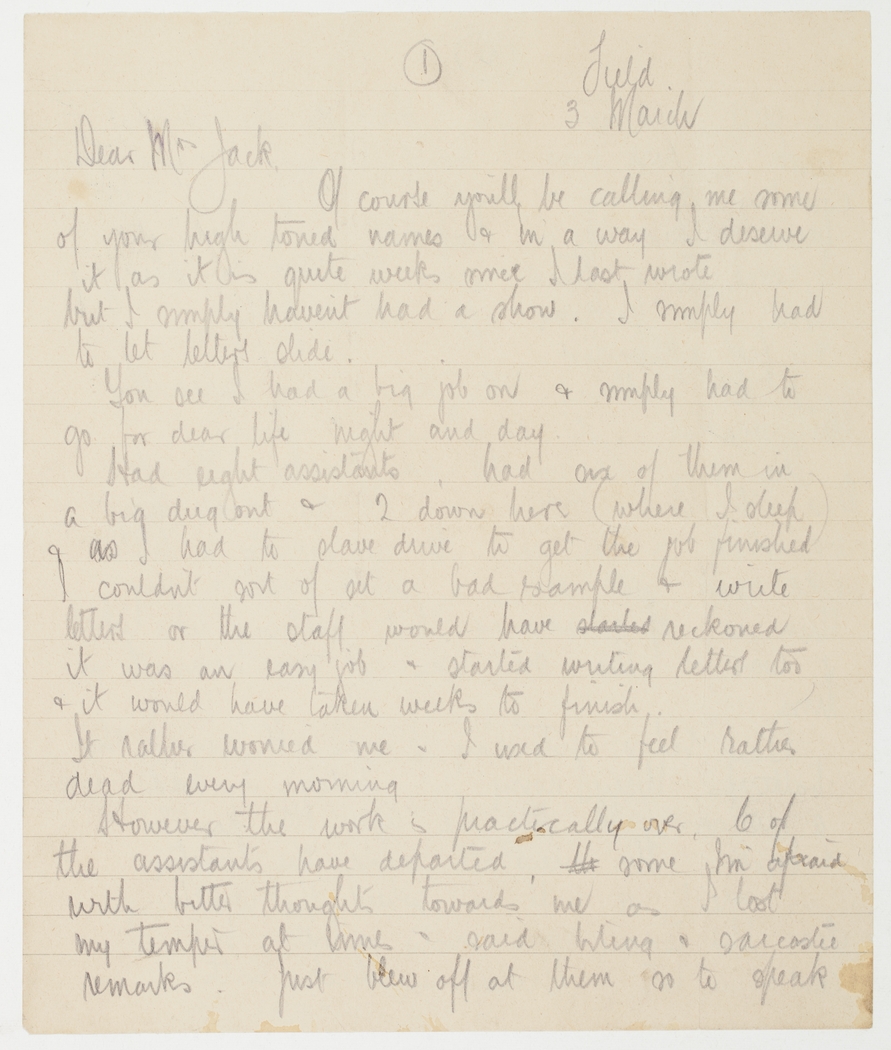 1
Field
3 March
Dear Mrs Jack.
Of course you'll be calling me some
of your high toned names & in a way I deserve
it as it is quite weeks since I last wrote
but I simply havent had a show. I simply had
to let letters slide.
You see I had a big job on & simply had to
go for dear life night and day
Had eight assistants, had six of them in
a big dug out & 2 down here (where I sleep)
& as I had to slave drive to get the job finished
I couldnt sort of set a bad example & write
letters or the staff would have started reckoned
it was an easy job & started writing letters too
& it would have taken weeks to finish.
It rather worried me & I used to feel rather
dead every morning
However the work is practically over. 6 of
the assistants have departed, some I'm afraid
with bitter thoughts towards me as I lost
my temper at times & said biting & sarcastic
remarks. Just blew off at them so to speak